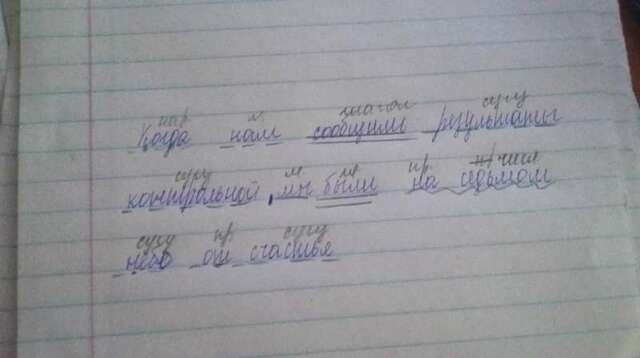 нар м. глагол сущ
Когда нам сообщили результаты
сущ м гл пр. числ
контрольной, мы были на седьмом
сущ пр. сущ
небо от счастья